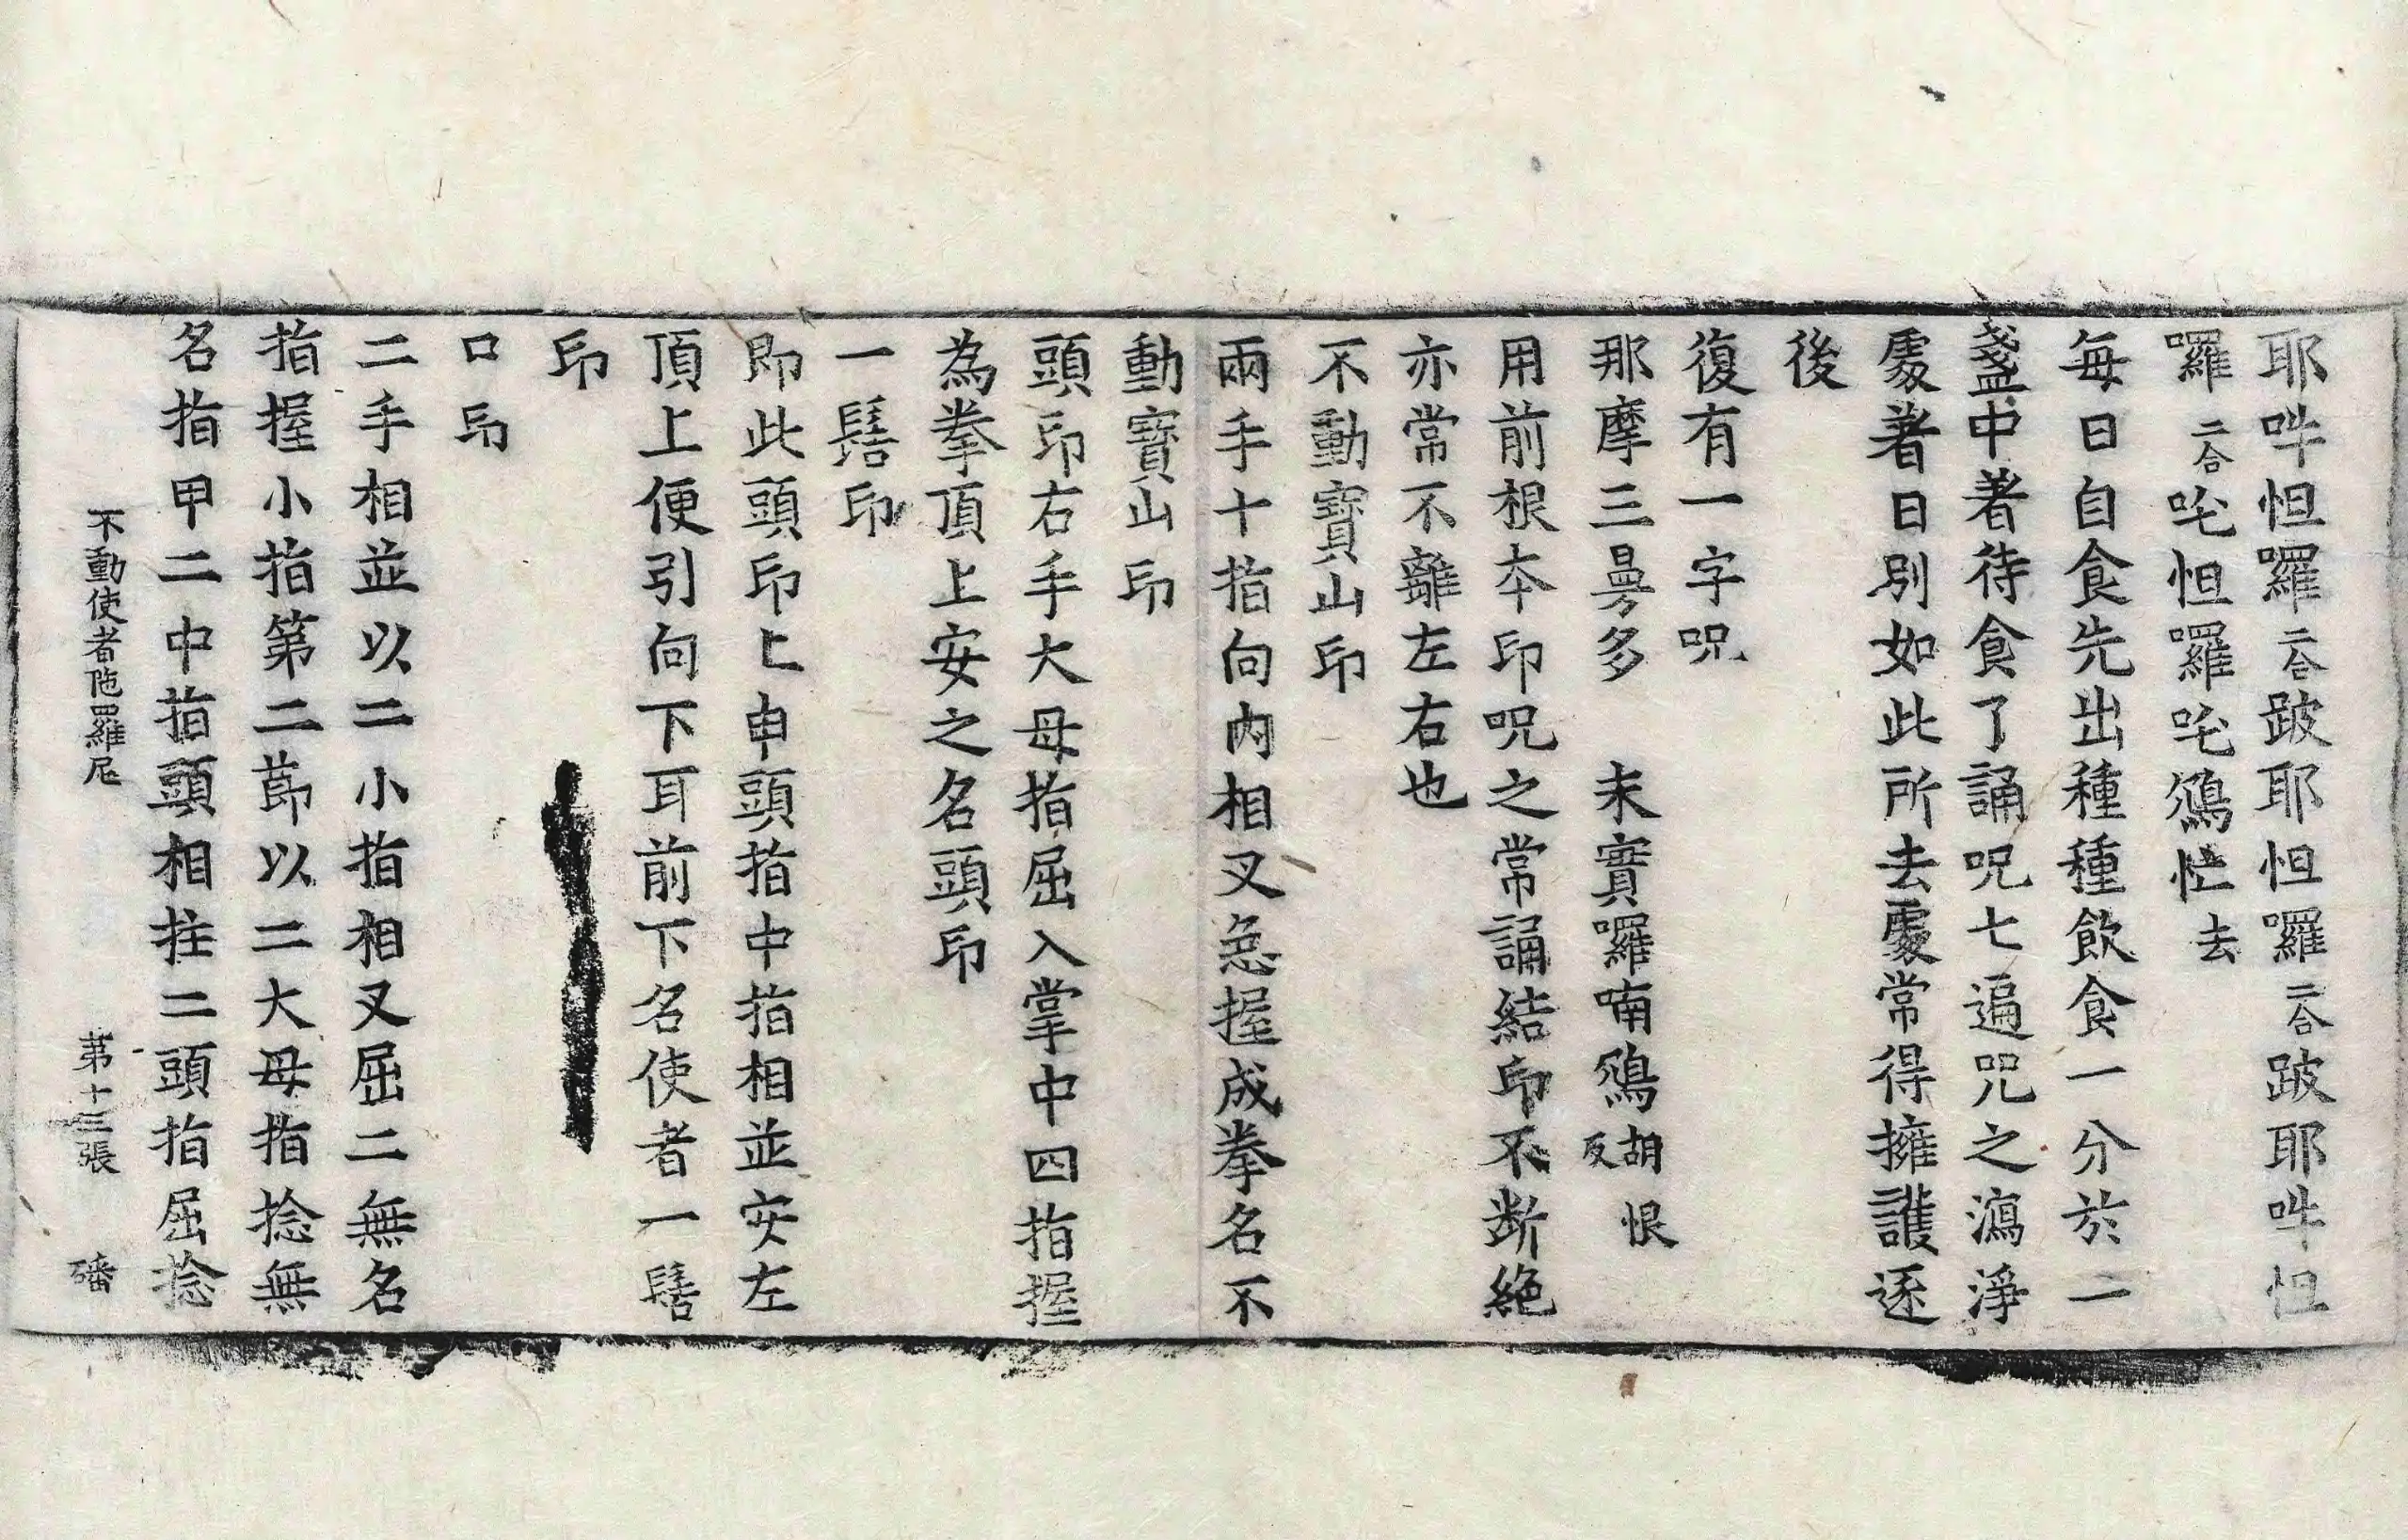 耶吽怛囉二合跛耶怛囉二合跛耶吽怛
囉二合吒怛囉吒鴆恾去
每日自食先出種種飲食一分於一
盞中著待食了誦呪七遍呪之瀉淨
處著日別如此所去處常得擁護逐
後
復有一字呪
那摩三曼多　末實囉喃鴆胡恨反
用前根本印呪之常誦結印不断絶
亦常不離左右也
不動寶山印
兩手十指向內相叉急握成拳名不
動寶山印
頭印右手大母指屈入掌中四指握
為拳頂上安之名頭印
一髻印
即此頭印上申頭指中指相並安左
頂上便引向下耳前下名使者一髻
印
口印
二手相並以二小指相叉屈二無名
指握小指第二莭以二大母指捻無
名指甲二中指頭相拄二頭指屈捻
不動使者陁羅尼　第十三張　磻